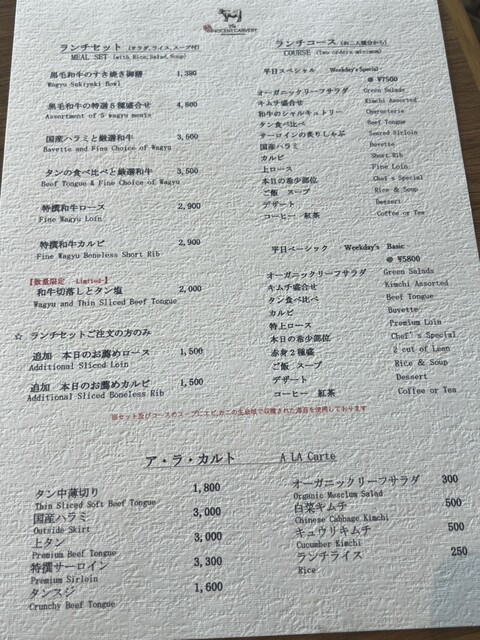 THE INNOCENT CARVERY
ランチセット (サラダ,ライス,スープ付)
MEAL SET (with Rice,Salad,Soup)
黒毛和牛のすき焼き御膳 1,380
Wagyu Sukiyaki Bowl
黒毛和牛の特選5種盛合せ 4,800
Assortment of 5 wagyu meats
国産ハラミと厳選和牛 3,500
Bavette and Fine Choice of Wagyu
タンの食べ比べと厳選和牛 3,500
Beef Tongue & Fine Choice of Wagyu
特撰和牛ロース 2,900
Fine Wagyu Loin
特撰和牛カルビ 2,900
Fine Wagyu Boneless Short Rib
【数量限定 -Limited-】
和牛切落しとタン塩 2,000
Wagyu and Thin Sliced Beef Tongue
☆ ランチセットご注文の方のみ
追加 本日のお薦めロース 1,500
Additional Sliced Loin
追加 本日のお薦めカルビ 1,500
Additional Sliced Boneless Rib
ランチコース (お二人様分から)
COURSE (Two orders minimum)
平日スペシャル Weekday's Special
@ ¥7500
オーガニックリーフサラダ Green Salads
キムチ盛合せ Kimchi Assorted
和牛のシャルキュトリー Charcuterie
タン食べ比べ Beef Tongue
サーロインの炙りしゃぶ Seared Sirloin
国産ハラミ Bavette
カルビ Short Rib
上ロース Fine Loin
本日の希少部位 Chef's Special
ご飯 スープ Rice & Soup
デザート Dessert
コーヒー 紅茶 Coffee or Tea
平日ベーシック Weekday's Basic
@ ¥5800
オーガニックリーフサラダ Green Salads
キムチ盛合せ Kimchi Assorted
タン食べ比べ Beef Tongue
カルビ Buvette
特上ロース Premium Loin
本日の希少部位 Chef's Special
赤身2種盛 2 cut of Leen
ご飯 スープ Rice & Soup
デザート Dessert
コーヒー 紅茶 Coffee or Tea
※セット及びコースのスープにエビ,カニの生息域で収穫された海苔を使用しております
ア・ラ・カルト A LA Carte
タン中薄切り 1,800
Thin Sliced Soft Beef Tongue
国産ハラミ 3,000
Outside Skirt
上タン 3,000
Premium Beef Tongue
特撰サーロイン 3,300
Premium Sirloin
タンスジ 1,600
Crunchy Beef Tongue
オーガニックリーフサラダ 300
Organic Musclum Salad
白菜キムチ 500
Chinese Cabbage Kimchi
キュウリキムチ 500
Cucumber Kimchi
ランチライス 250
Rice